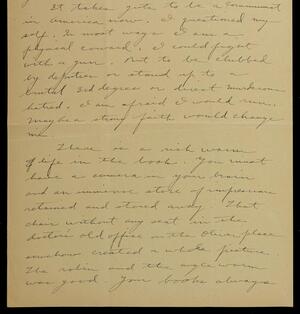 It takes guts to be a Communist
in America now. I questioned my
self. In most ways I am a
physical coward. I could fight
with a gun. But to be clubbed
by deputies or stand up to a
brutal 3rd degree or direct murderous
hatred. I am afraid I would run.
Maybe a strong faith would change
me.
There is a rich warm
life in the book. You must
have a camera in your brain
and an immense store of impressions
retained and stored away. That
chair without any seat in the
doctors old office in the Oliver place
somehow created a whole picture.
The robin and the angle worm
was good. Your books always